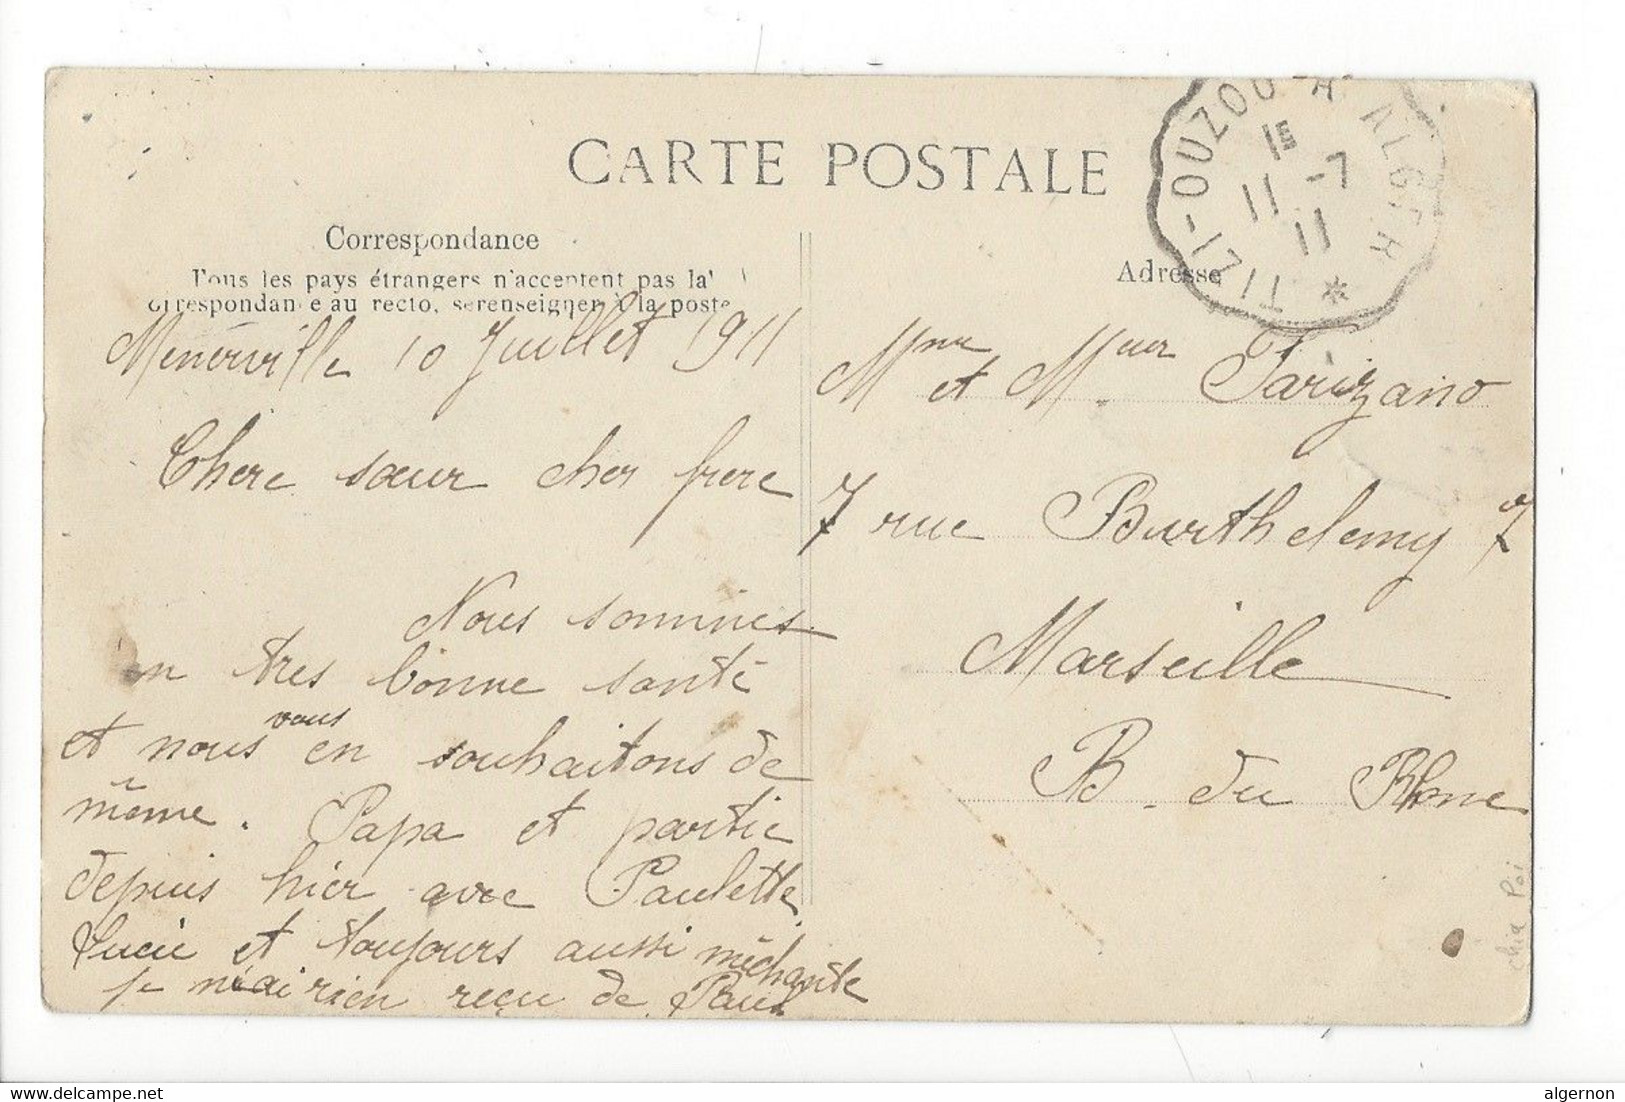 CARTE POSTALE
Correspondance
Tous les pays étrangers n'acceptent pas la
correspondance au recto, se renseigner à la poste
Menerville 10 Juillet 1911
Chere sœur cher frere
Nous sommes
en tres bonne santé
et nous vous en souhaitons de
même. Papa et partie
depuis hier avec Paulette
Lucie et toujours aussi mèchante
je n'ai rien reçu de Paul
Adresse
TIZI-OUZOU A ALGER
11 -7
11
Mme et Meur Tarizano
7 rue Barthelemy 7
Marseille
B. du Rhone
delcampe.net
algernon